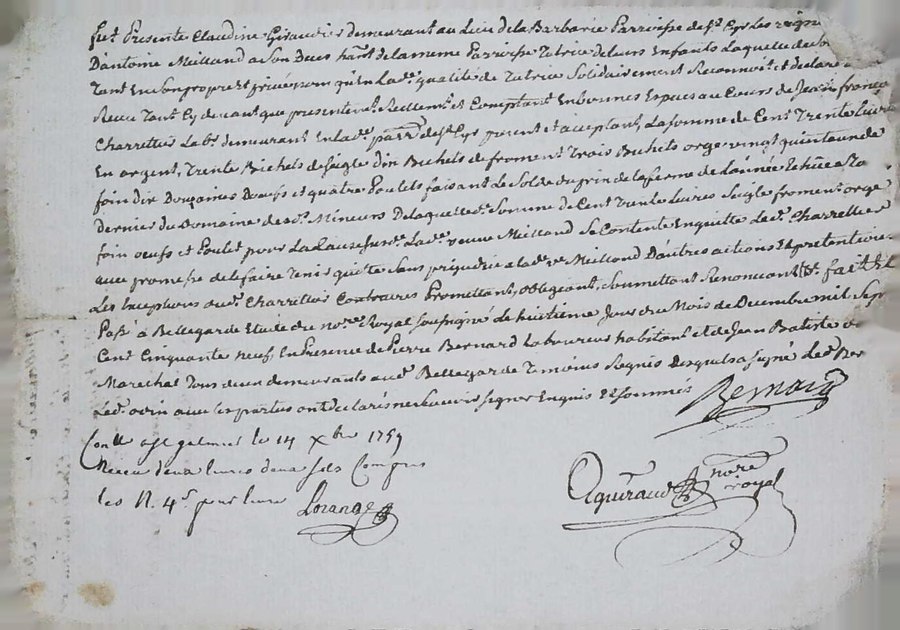 fut Presente Claudine Giraudier demeurant au Lieu de la Barbarie Parroisse de st Cyr Les
D'antoine Meilland a Son Deces hant. de la meme Parroisse Tutrice de leurs Enfants Laquelle
Tant En Son propre et privé nom qu'En Lad.e qualité de Tutrice Solidairement Reconnoit et declare
Receu Tant Cy devant que presentemt. Reellemt. et Comptant En bonnes Especes au Cours de
Charrettier Lab.r demeurant En lad.e parr.e de st Cyr present et acceptant, La somme de Cent Trente Livres
En argent, Trente Bichets de Seigle Dix Bichets de froment Trois Bichets orge vingt quintaux de
foin dix Douzaines Doeufs et quatre Poulets faisant Le Solde du prix de la ferme de L'année Echüe a
dernier du Domaine des Mineurs De laquelle Somme de Cent Trente Livres Seigle froment orge
foin oeufs et Poulet pour La Cause Susd.e Lad.e veuve Meilland Se Contente En quitte Led. Charrettier
avec promesse de le faire Tenir quitte Sans prejudice a lad.e ve Meilland D'autres actions Et pretentions
Les Exceptions aud. Charrettier Contraires Promettant, obligeant, Soumettant Renonceant fait Et
Passé à Bellegarde Etude du no.re Royal Soussigné Le huitieme Jour du Mois de Decembre mil Sept
Cent Cinquante neuf En Presence de Pierre Bernard Laboureur habitant et de Jean Batiste
Marechal Tous deux demeurants aud. Bellegarde Temoins Requis Desquels a signé Led. Ber
Led. avec Les parties ont declaré ne Scavoir signer Enquis Et Sommés
Bernard
Con.lle a st galmier le 14 Xbre 1759
Receu deux livres deux sols Compris
les N. 4.s pour livre Lorange
Aguiraud no.re royal